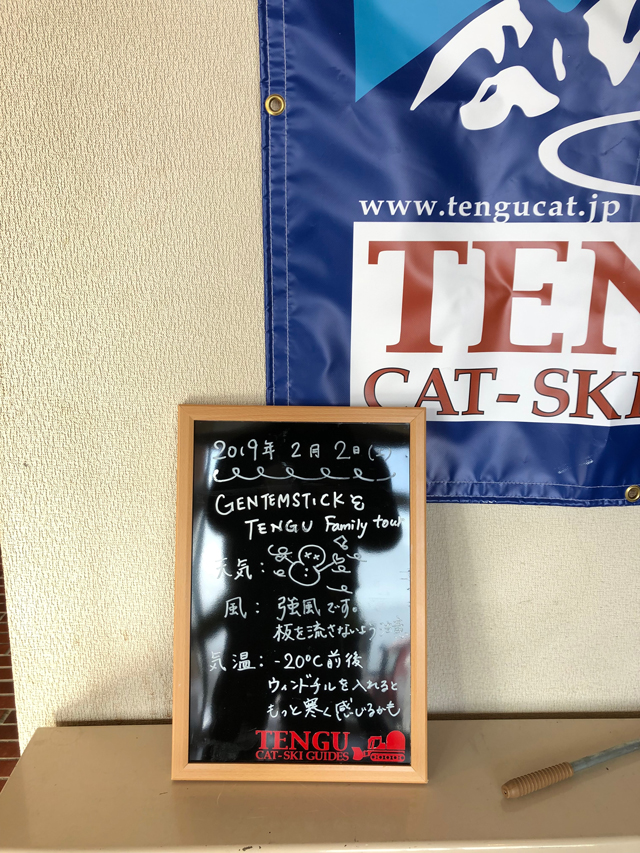 www.tengucat.jp
TEN
CAT-SKI
2019年 2月 2日(土)
GENTEMSTICKと
TENGU Family tour
天気:
風: 強風です。
板を流さないよう注意
気温: -20℃前後
ウィンドチルを入れると
もっと寒く感じるかも
TENGU
CAT-SKI GUIDES